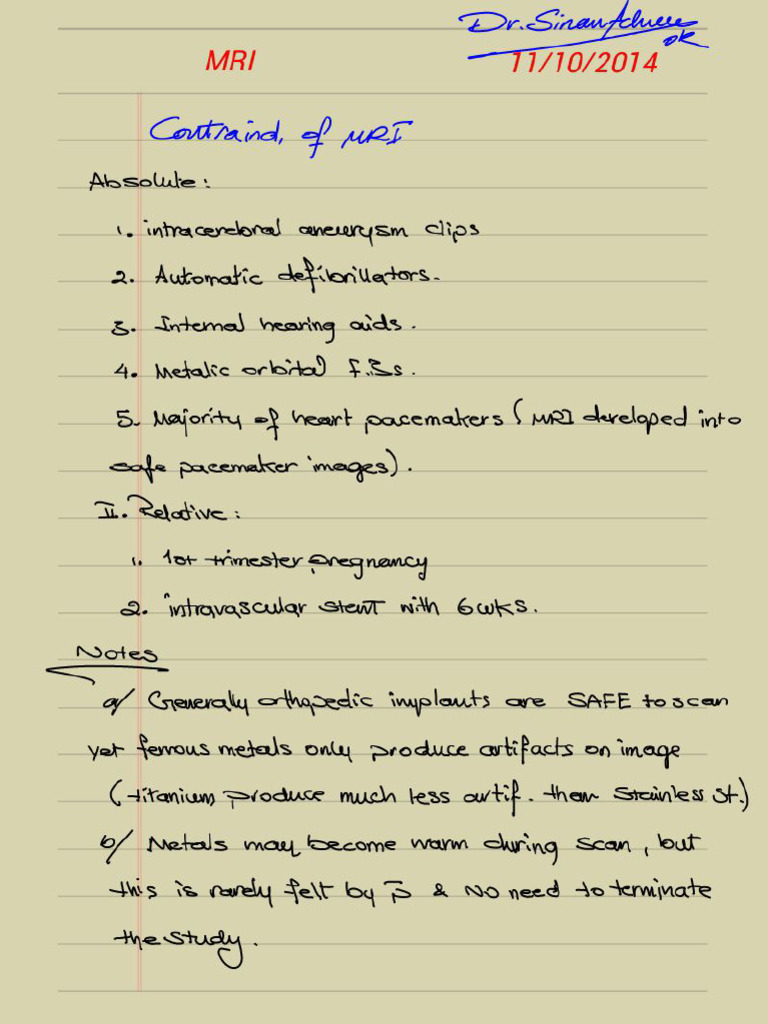 Dr. Sinan
OK
MRI
11/10/2014
Contraind. of MRI
Absolute:
1. intracerebral aneurysm clips
2. Automatic defibrillators.
3. Internal hearing aids.
4. Metalic orbital F.Bs.
5. Majority of heart pacemakers (MRI developed into
safe pacemaker images).
II. Relative:
1. 1st trimester pregnancy
2. intravascular stent with 6wks.
Notes
a/ Generally orthopedic implants are SAFE to scan
yet ferrous metals only produce artifacts on image
(titanium produce much less artif. than stainless st.)
b/ Metals may become warm during scan, but
this is rarely felt by p̄ & NO need to terminate
the study.